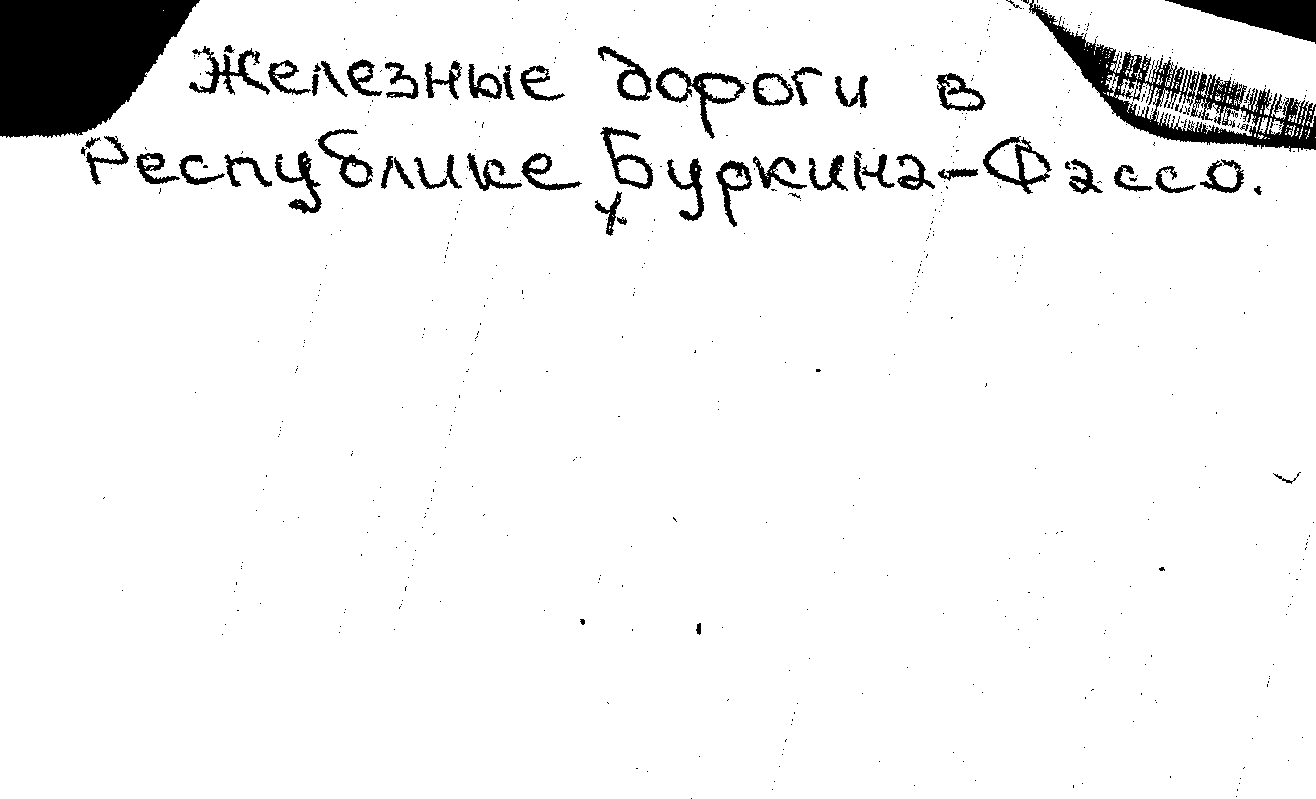 Железные дороги в
Республике Буркина-Фассо.